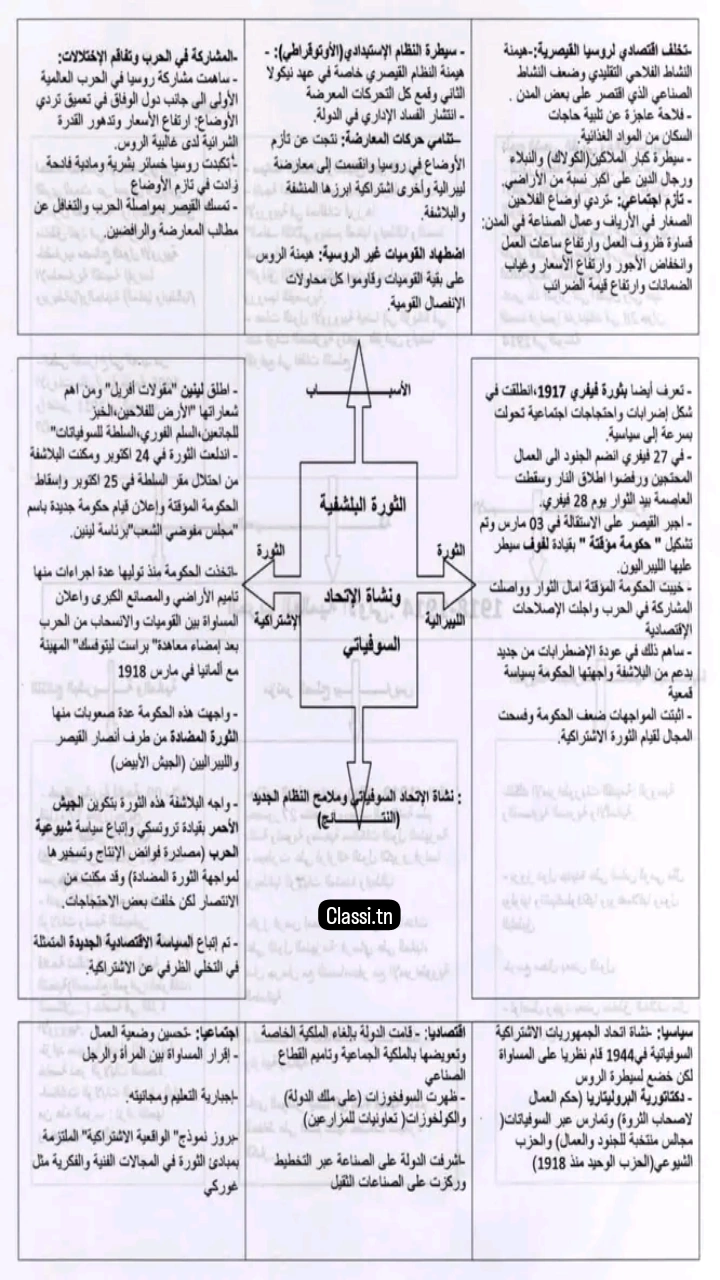 -تخلف اقتصادي لروسيا القيصرية:-هيمنة
النشاط الفلاحي التقليدي وضعف النشاط
الصناعي الذي اقتصر على بعض المدن .
- فلاحة عاجزة عن تلبية حاجات
السكان من المواد الغذائية.
- سيطرة كبار الملاكين(الكولاك) والنبلاء
ورجال الدين على اكبر نسبة من الأراضي.
- تأزم اجتماعي: -تردي أوضاع الفلاحين
الصغار في الأرياف وعمال الصناعة في المدن:
قساوة ظروف العمل وارتفاع ساعات العمل
وانخفاض الأجور وارتفاع الأسعار وغياب
الضمانات وارتفاع قيمة الضرائب
- سيطرة النظام الإستبدادي(الأوتوقراطي): -
هيمنة النظام القيصري خاصة في عهد نيكولا
الثاني وقمع كل التحركات المعرضة
- انتشار الفساد الإداري في الدولة.
-تنامي حركات المعارضة: نتجت عن تأزم
الأوضاع في روسيا وانقسمت إلى معارضة
ليبرالية وأخرى اشتراكية ابرزها المنشفة
والبلاشفة.
اضطهاد القوميات غير الروسية: هيمنة الروس
على بقية القوميات وقاوموا كل محاولات
الإنفصال القومية.
-المشاركة في الحرب وتفاقم الإختلالات:
- ساهمت مشاركة روسيا في الحرب العالمية
الأولى الى جانب دول الوفاق في تعميق تردي
الأوضاع: ارتفاع الأسعار وتدهور القدرة
الشرائية لدى غالبية الروس.
- تكبدت روسيا خسائر بشرية ومادية فادحة
زادت في تازم الأوضاع
- تمسك القيصر بمواصلة الحرب والتغافل عن
مطالب المعارضة والرافضين.
الأسبـــــــــاب
- تعرف أيضا بثورة فيفري 1917،انطلقت في
شكل إضرابات واحتجاجات اجتماعية تحولت
بسرعة إلى سياسية.
- في 27 فيفري انضم الجنود الى العمال
المحتجين ورفضوا اطلاق النار وسقطت
العاصمة بيد الثوار يوم 28 فيفري.
- اجبر القيصر على الاستقالة في 03 مارس وتم
تشكيل " حكومة مؤقتة " بقيادة لفوف سيطر
عليها الليبراليون.
- خيبت الحكومة المؤقتة امال الثوار وواصلت
المشاركة في الحرب واجلت الإصلاحات
الإقتصادية
- ساهم ذلك في عودة الإضطرابات من جديد
بدعم من البلاشفة واجهتها الحكومة بسياسة
قمعية
- اثبتت المواجهات ضعف الحكومة وفسحت
المجال لقيام الثورة الاشتراكية.
الثورة البلشفية
ونشاة الإتحاد
السوفياتي
الثورة
الليبرالية
الثورة
الإشتراكية
- اطلق لينين "مقولات أفريل" ومن اهم
شعاراتها "الأرض للفلاحين،الخبز
للجائعين،السلم الفوري،السلطة للسوفياتات"
- اندلعت الثورة في 24 اكتوبر ومكنت البلاشفة
من احتلال مقر السلطة في 25 اكتوبر وإسقاط
الحكومة المؤقتة وإعلان قيام حكومة جديدة باسم
"مجلس مفوضي الشعب"برئاسة لينين.
-اتخذت الحكومة منذ توليها عدة اجراءات منها
تاميم الأراضي والمصانع الكبرى واعلان
المساواة بين القوميات والانسحاب من الحرب
بعد إمضاء معاهدة" براست ليتوفسك" المهينة
مع ألمانيا في مارس 1918
- واجهت هذه الحكومة عدة صعوبات منها
الثورة المضادة من طرف أنصار القيصر
والليبراليين (الجيش الأبيض)
- واجه البلاشفة هذه الثورة بتكوين الجيش
الأحمر بقيادة تروتسكي وإتباع سياسة شيوعية
الحرب (مصادرة فوائض الإنتاج وتسخيرها
لمواجهة الثورة المضادة) وقد مكنت من
الانتصار لكن خلفت بعض الاحتجاجات.
- تم إتباع السياسة الاقتصادية الجديدة المتمثلة
في التخلي الظرفي عن الاشتراكية.
: نشاة الإتحاد السوفياتي وملامح النظام الجديد
(النتـــــــائج)
Classi.tn
سياسيا: -نشاة اتحاد الجمهوريات الاشتراكية
السوفياتية في1944 قام نظريا على المساواة
لكن خضع لسيطرة الروس
- دكتاتورية البروليتاريا (حكم العمال
لاصحاب الثروة) وتمارس عبر السوفياتات(
مجالس منتخبة للجنود والعمال) والحزب
الشيوعي(الحزب الوحيد منذ 1918)
اقتصاديا: - قامت الدولة بإلغاء الملكية الخاصة
وتعويضها بالملكية الجماعية وتاميم القطاع
الصناعي
- ظهرت السوفخوزات (على ملك الدولة)
والكولخوزات( تعاونيات للمزارعين)
-اشرفت الدولة على الصناعة عبر التخطيط
وركزت على الصناعات الثقيل
اجتماعيا: -تحسين وضعية العمال
- إقرار المساواة بين المرأة والرجل
-إجبارية التعليم ومجانيته.
-بروز نموذج" الواقعية الاشتراكية" الملتزمة
بمبادئ الثورة في المجالات الفنية والفكرية مثل
غوركي